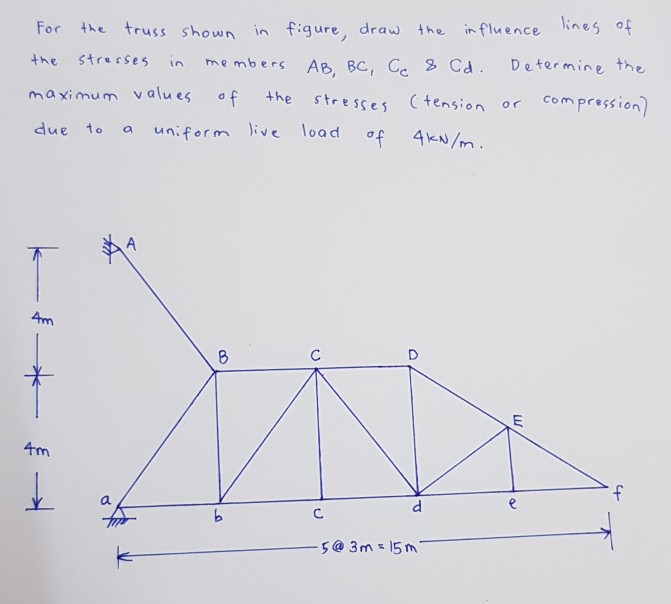 For the truss shown in figure, draw the influence lines of
the stresses in members AB, BC, Cc & Cd. Determine the
maximum values of the stresses (tension or compression)
due to a uniform live load of 4kN/m.
A
4m
B C D
E
4m
a b c d e f
5@3m = 15m